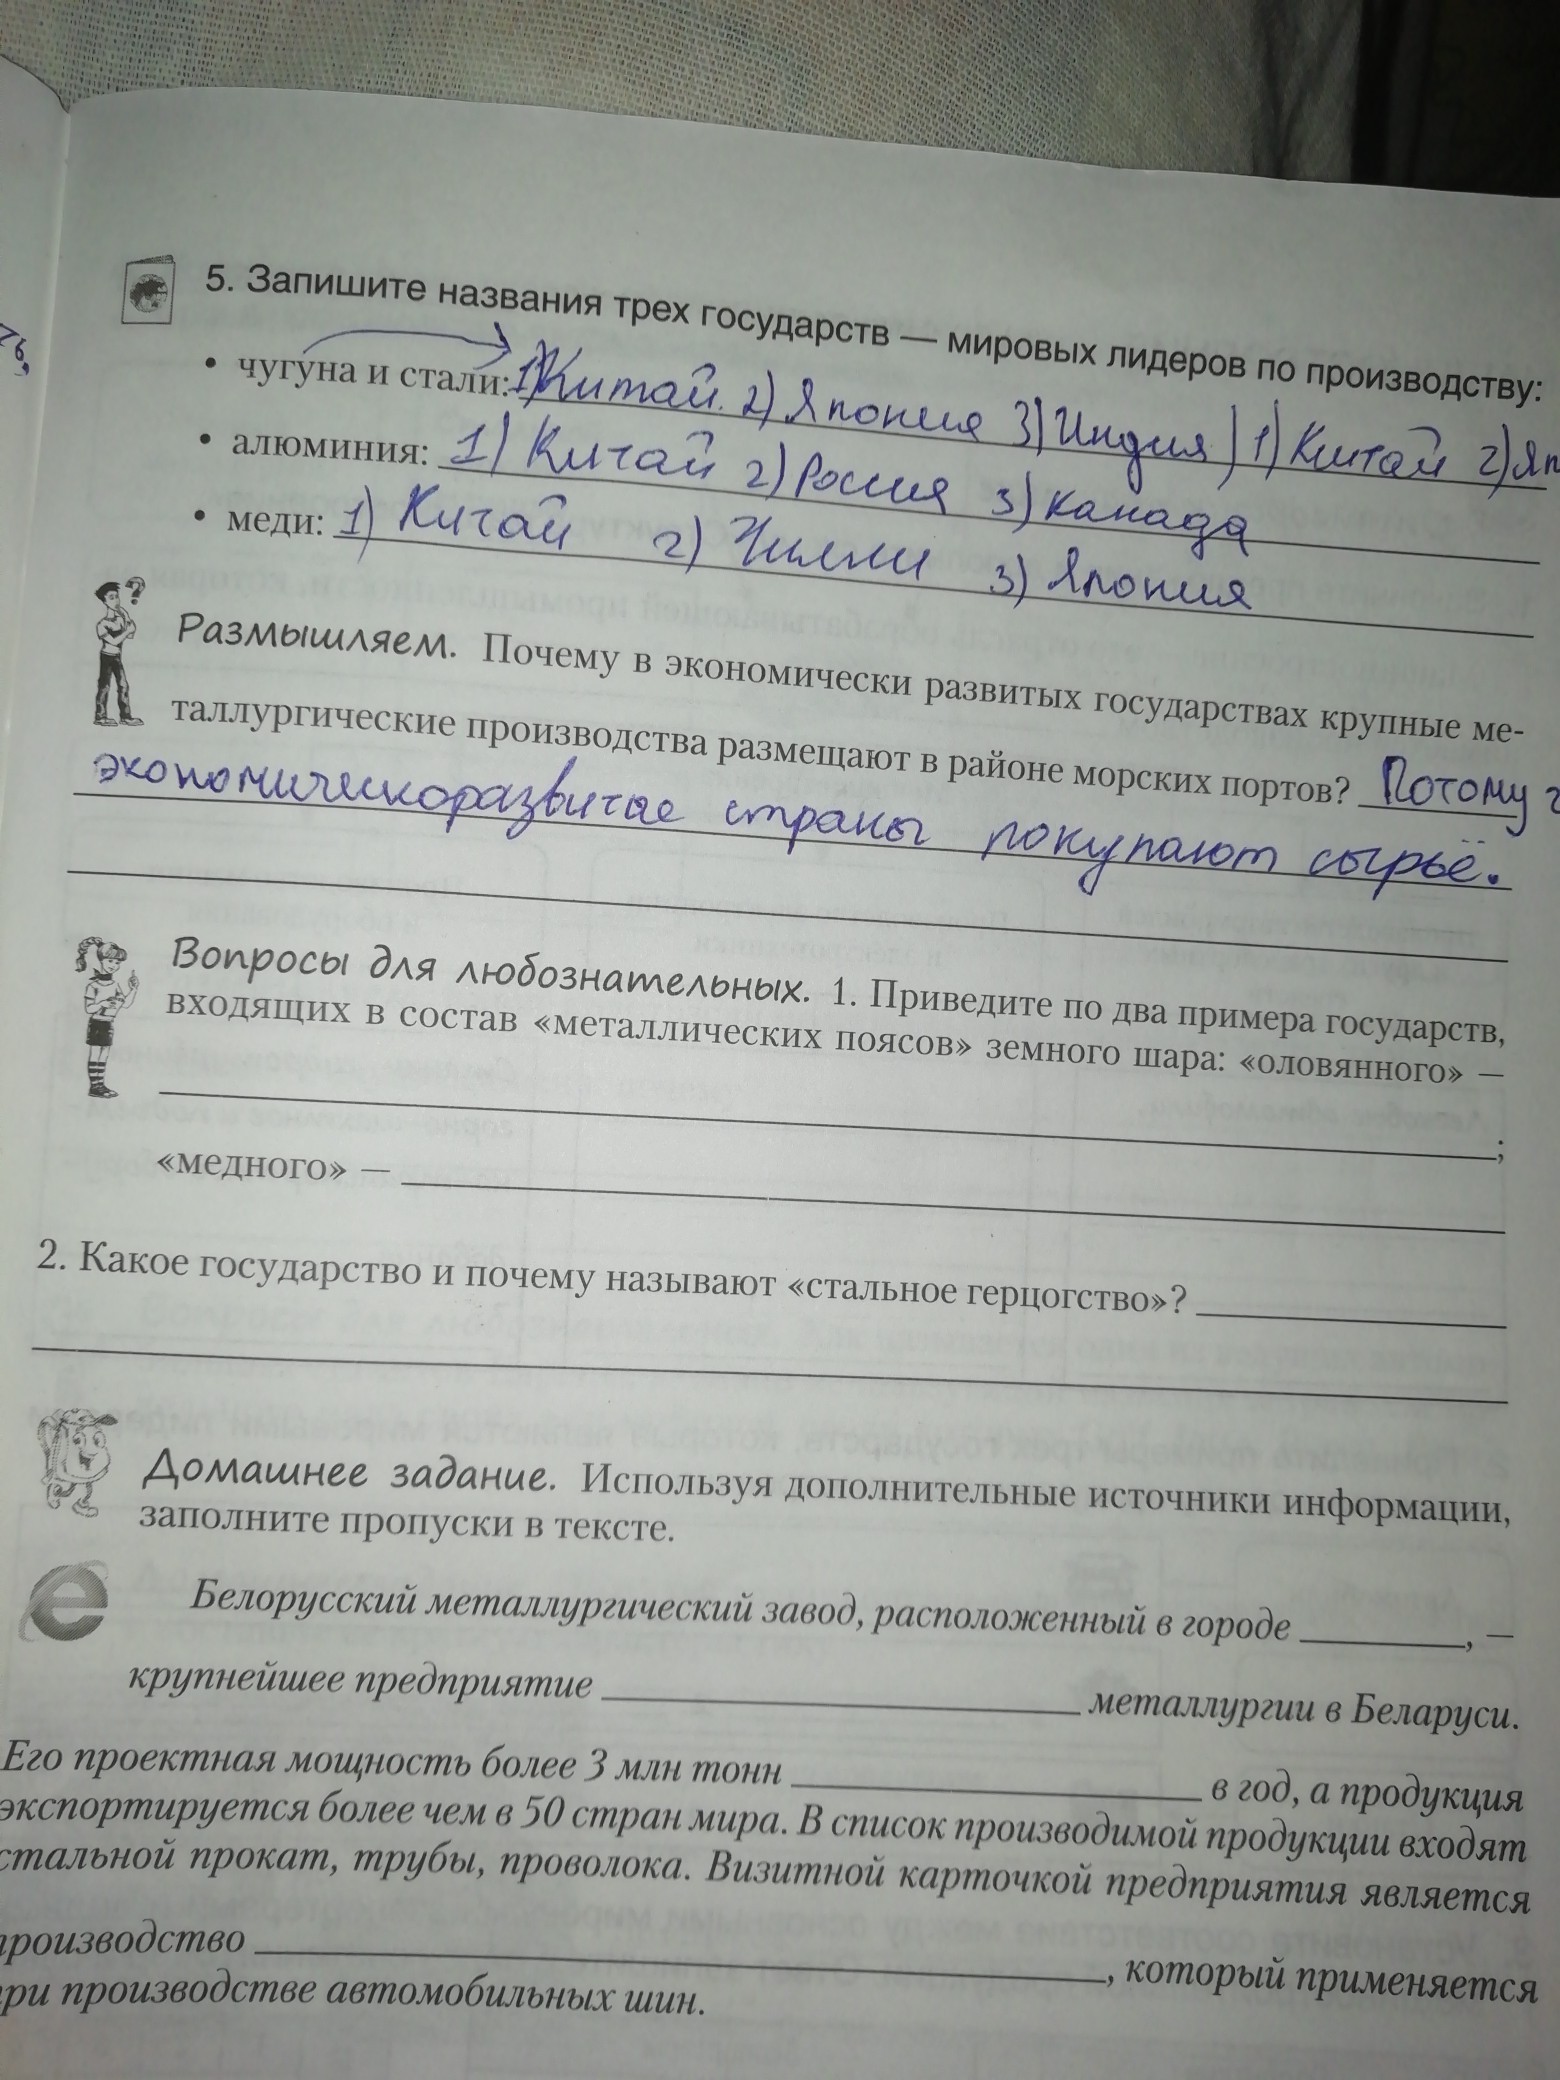 5. Запишите названия трех государств — мировых лидеров по производству:
• чугуна и стали: 1) Китай. 2) Япония 3) Индия) 1) Китай 2) Яп
• алюминия: 1) Китай 2) Россия 3) Канада
• меди: 1) Китай 2) Чилли 3) Япония
Размышляем. Почему в экономически развитых государствах крупные ме-
таллургические производства размещают в районе морских портов? Потому
экономическоразвитые страны покупают сырьё.
Вопросы для любознательных. 1. Приведите по два примера государств,
входящих в состав «металлических поясов» земного шара: «оловянного» —
;
«медного» —
2. Какое государство и почему называют «стальное герцогство»?
Домашнее задание. Используя дополнительные источники информации,
заполните пропуски в тексте.
Белорусский металлургический завод, расположенный в городе , —
крупнейшее предприятие металлургии в Беларуси.
Его проектная мощность более 3 млн тонн в год, а продукция
экспортируется более чем в 50 стран мира. В список производимой продукции входят
стальной прокат, трубы, проволока. Визитной карточкой предприятия является
производство , который применяется
при производстве автомобильных шин.